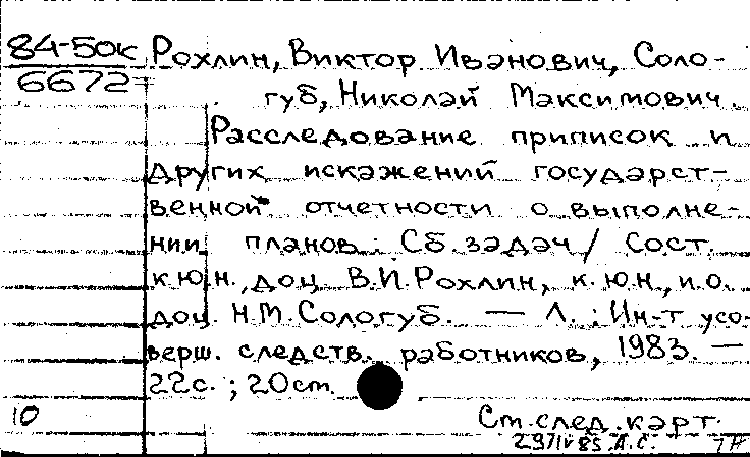 84-50к Рохлин, Виктор Иванович, Соло-
6672= губ, Николай Максимович.
Расследование приписок и
других искажений государст-
венной отчетности о выполне-
нии планов : Сб. задач / Сост.
к.ю.н., доц. В.И. Рохлин, к.ю.н., и.о.
доц. Н.М. Сологуб. — Л. : Ин-т усо-
верш. следств. работников, 1983. —
22с. ; 20см.
10 См. след. карт.
85 Д.С.